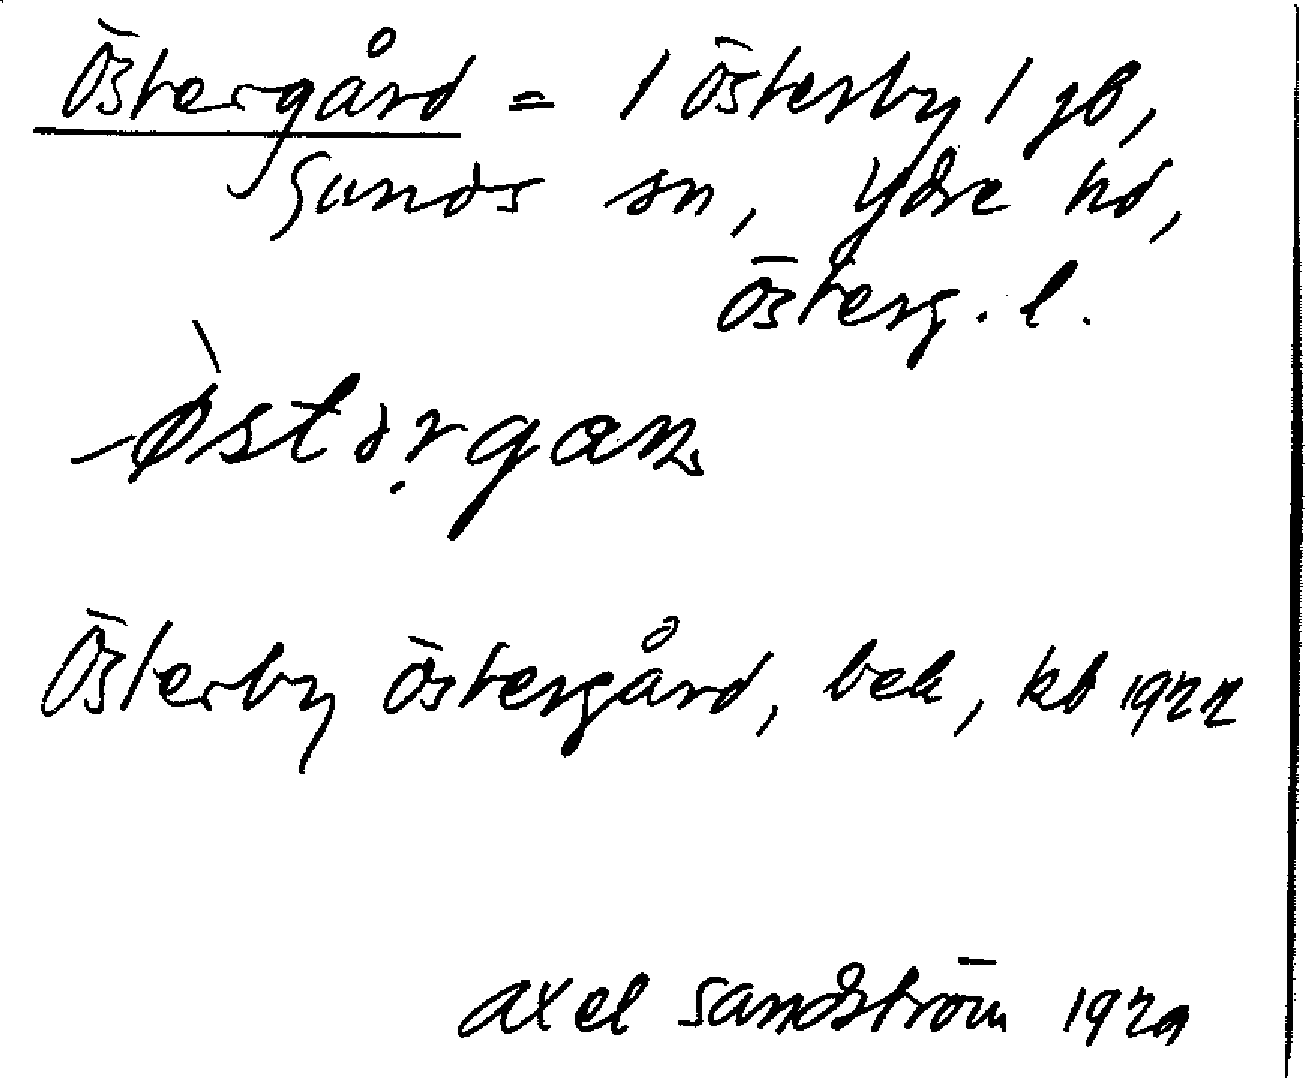 Östergård = / Österby / gd,
Sunds sn, Ydre hd,
Österg. l.
Österby Östergård, bek, kb 1922
Axel Sandström 1929